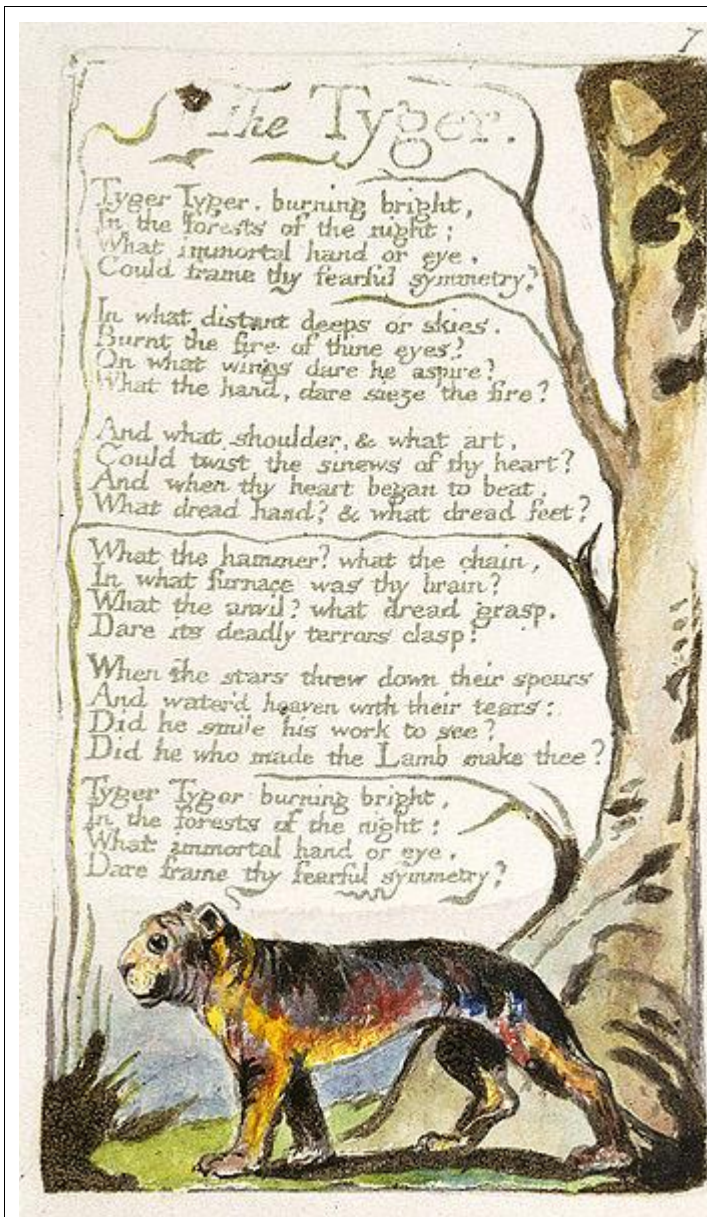 7
The Tyger.
Tyger Tyger. burning bright,
In the forests of the night;
What immortal hand or eye,
Could frame thy fearful symmetry?
In what distant deeps or skies.
Burnt the fire of thine eyes?
On what wings dare he aspire?
What the hand, dare sieze the fire?
And what shoulder, & what art,
Could twist the sinews of thy heart?
And when thy heart began to beat,
What dread hand? & what dread feet?
What the hammer? what the chain,
In what furnace was thy brain?
What the anvil? what dread grasp.
Dare its deadly terrors clasp!
When the stars threw down their spears
And water'd heaven with their tears:
Did he smile his work to see?
Did he who made the Lamb make thee?
Tyger Tyger burning bright,
In the forests of the night:
What immortal hand or eye,
Dare frame thy fearful symmetry?